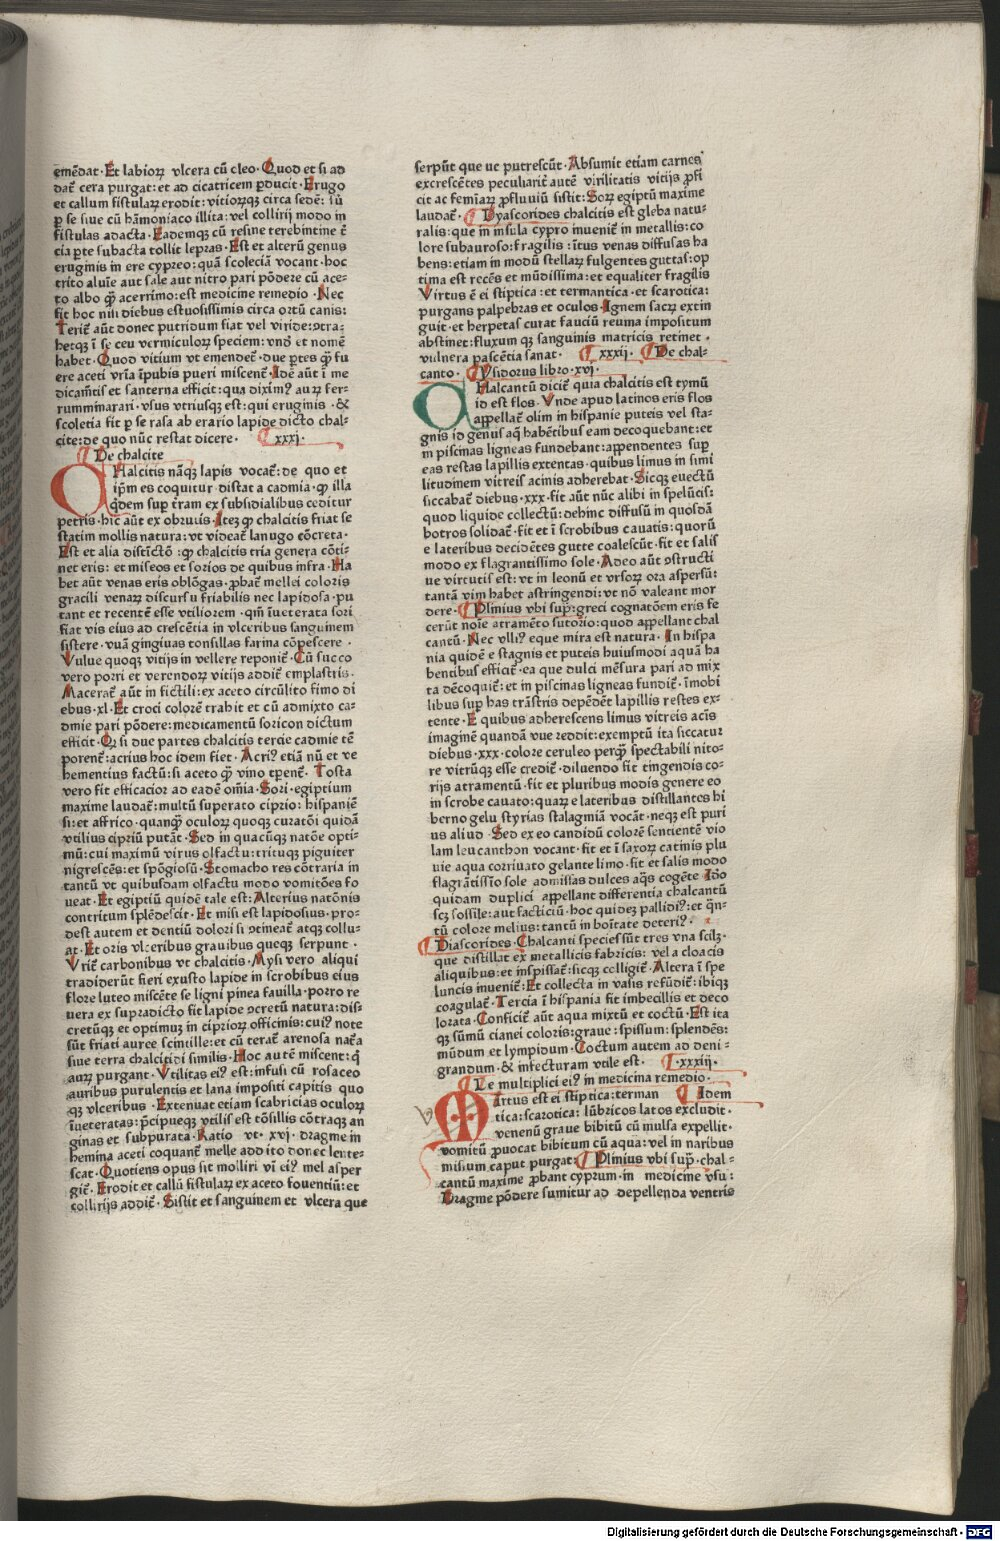 emēdat· Et labioꝝ vlcera cū cleo· Quod et si ad
dat̄ cera purgat: et ad cicatricem ꝑducit· Erugo
et callum fistulaꝝ erodit: vitioꝝqꝫ circa sedē: sū
ꝑ se siue cū hāmoniaco illita: vel collirij modo in
fistulas adacta· Eademqꝫ cū resine terebintine t̄
cia ꝑte subacta tollit lepras· Est et alterū genus
eruginis in ere cypreo: quā scoleciā vocant· hoc
trito aluīe aut sale aut nitro pari pōdere cū ace-
to albo qꝫ acerrimo: est medicine remedio· Nec
fit hoc nisi diebus estuosissimis circa ortū canis:
Terit̄ aūt donec putridum fiat vel viride: ↄtra-
hetqꝫ ī se ceu vermiculoꝝ speciem: vnd̄ et nomē
habet· Quod vitium vt emendet̄· due ꝑtes qꝫ fu
ere aceti vrīa īpubis pueri miscent̄· Idē aūt ī me
dicamētis et santerna efficit: qua diximꝰ auꝝ fer-
rumminarari· vsus vtriusqꝫ est: qui eruginis· &
scoletia fit ꝑ se rasa ab erario lapide dicto chal-
cite: de quo nūc restat dicere· ¶ xxxi·
¶ De chalcite
CHalcitis nāqꝫ lapis vocat̄: de quo et
ip̄m es coquitur· distat a cadmia· qꝫ illa
q̄dem suꝑ t̄ram ex subsidialibus ceditur
petris· hic aūt ex obruuis· Iteꝫ qꝫ chalcitis friat se
statim mollis natura: vt videat̄ lanugo cōcreta·
Est et alia distīctō: qꝫ chalcitis tria genera cōti-
net eris: et miseos et sorios de quibus infra· Ha
bet aūt venas eris oblōgas· ꝓbat̄ mellei coloris
gracili venaꝝ discursu friabilis nec lapidosa· pu
tant et recentē esse vtiliorem· qm̄ īueterata sori
fiat vis eius ad crescētia in vlceribus sanguinem
sistere· vuā gingiuas tonsillas farina cōpescere·
Vulue quoqꝫ vitijs in vellere reponit̄· Cū succo
vero porri et verendoꝝ vitijs addit̄ emplastris·
Macerat̄ aūt in fictili: ex aceto circūlito fimo di
ebus· xl· Et croci colorē trahit et cū admixto ca-
dmie pari pōdere: medicamentū soricon dictum
efficit· Qꝫ si due partes chalcitis tercie cadmie tē
porent̄: acrius hoc idem fiet· Acriꝰ etiā nū et ve
hementius factū: si aceto qꝫ vino tꝑent̄· Tosta
vero fit efficacior ad eadē om̄ia· Sori· egiptium
maxime laudat̄: multū superato ciprio: hispaniē
si: et affrico· quanqꝫ oculoꝝ quoqꝫ curatōi quidā
vtilius cipriū putāt· Sed in quacūqꝫ natōe opti-
mū: cui maximū virus olfactu: trituqꝫ piguiter
nigrescēs: et spōgiosū· Stomacho res cōtraria in
tantū vt quibusdam olfactu modo vomitōes fo
ueat· Et egiptiū quidē tale est: Alterius natōnis
contritum splēdescit· Et misi est lapidosus· pro-
dest autem et dentiū dolori si ↄtineat̄ atqꝫ collu-
at· Et oris vlceribus grauibus queqꝫ serpunt·
Vrit̄ carbonibus vt chalcitis· Mysi vero aliqui
tradiderūt fieri exusto lapide in scrobibus eius
flore luteo miscēte se ligni pinea fauilla· porro re
uera ex supradicto fit lapide ↄcretū natura: dis-
cretūqꝫ et optimuꝫ in ciprioꝝ officinis: cuiꝰ note
sūt friati auree scintille: et cū terat̄ arenosa nat̄a
siue terra chalcitidi similis· Hoc autē miscent: q̄
auꝝ purgant· Vtilitas eiꝰ est: infusi cū rosaceo
auribus purulentis et lana impositi capitis quo
qꝫ vlceribus· Extenuat etiam scabricias oculoꝝ
īueteratas: p̄cipueqꝫ vtilis est tōsillis cōtraqꝫ an
ginas et suppurata· Ratio vt· xvj· dragme in
hemina aceti coquant̄ melle addito donec lente-
scat· Quotiens opus sit molliri vī eiꝰ mel asper
git̄· Erodit et callū fistulaꝝ ex aceto fouentiū: et
collirijs addit̄· Sistit et sanguinem et vlcera que
serpūt que uc putrescūt· Absumit etiam carnes
excrescētes peculiarit̄ autē virilitatis vitijs ꝓfi
cit ac femīaꝝ ꝓfluuiū sistit: Soꝝ egiptū maxime
laudat̄· ¶ Dyascorides chalcitis est gleba natu-
ralis: que in insula cypro inuenit̄ in metallis: co
lore subauroso: fragilis: ītus venas diffusas ha
bens: etiam in modū stellaꝝ fulgentes guttas: op
tima est recēs et mūdissima: et equaliter fragilis
Virtus ē ei stiptica: et termantica· et scarotica:
purgans palpebras et oculos· Ignem sacꝝ extin
guit· et herpetas curat fauciū reuma impositum
abstinet: fluxum qꝫ sanguinis matricis retinet·
vulnera pascētia sanat· ¶ xxxij· ¶ De chal-
canto· ¶ Ysidorus libro· xvj·
CHalcantū dicit̄ quia chalcitis est tymū
id est flos· Vnde apud latinos eris flos
appellat̄ olim in hispanie puteis vel sta-
gnis id genus aq̄ habētibus eam decoquebant: et
in piscinas ligneas fundebant: appendentes suꝑ
eas restas lapillis extentas· quibus limus in simi
litudinem vitrei acinis adherebat· Sicqꝫ euectū
siccabat̄ diebus· xxx· fit aūt nūc alibi in spelūcis:
quod liquide collectū: dehinc diffusū in quosdā
botros solidat̄· fit et ī scrobibus cauatis: quorū
e lateribus decidētes gutte coalescūt· fit et salis
modo ex flagrantissimo sole· Adeo aūt ↄstructi
ue virtutis est: vt in leonū et vrsoꝝ ora aspersū:
tantā vim habet astringendi: vt nō valeant mor
dere· ¶ Plinius vbi supͬ: greci cognatōem eris fe
cerūt noīe atramēto sutorio: quod appellant chal
cantū· Nec vlliꝰ eque mira est natura· In hispa
nia quidē e stagnis et puteis huiusmodi aquā ha
bentibus efficit̄· ea que dulci mēsura pari ad mix
ta dēcoquit̄: et in piscinas ligneas fundit̄· īmobi
libus suꝑ has trāstris depēdēt lapillis restes ex-
tente· E quibus adherescens limus vitreis acīs
imaginē quandā vue reddit: exemptū ita siccatur
diebus· xxx· colore ceruleo perqꝫ spectabili nito-
re vitrūqꝫ esse credit̄· diluendo fit tingendis co-
rijs atramentū· fit et pluribus modis genere eo
in scrobe cauato: quaꝝ e lateribus distillantes hi
berno gelu styrias stalagmiā vocāt· neqꝫ est puri
us aliud· Sed ex eo candidū colorē sentientē vio
lam leucanthon vocant· fit et ī saxoꝝ catinis plu
uie aqua corriuato gelante limo· fit et salis modo
flagrātissīo sole admissas dulces aq̄s cogēte· Ido
quidam duplici appellant differentia chalcantū
scꝫ fossile: aut facticiū· hoc quideꝫ pallidiꝰ: et q̄n-
tū colore melius: tantū in bōitate deteriꝰ·
¶ Diascorides· Chalcanti species sūt tres vna scilꝫ·
que distillat ex metallicis fabricis: vel a cloacis
aliquibus: et inspissat̄: sicqꝫ colligit̄· Altera ī spe
luncis inuenit̄: Et collecta in vasis refūdit̄: ibiqꝫ
coagulat̄· Tercia ī hispania fit imbecillis et deco
lorata· Conficit̄ aūt aqua mixtū et coctū· Est ita
qꝫ sūmū cianei coloris: graue: spissum: splendēs:
mūdum et lympidum· Coctum autem ad deni-
grandum· & infecturam vtile est· ¶ xxxiij·
¶ De multiplici eiꝰ in medicina remedio·
MIrtus est ei stiptica: terman ¶ Idem
tica: scarotica: lūbricos latos excludit·
venenū graue bibitū cū mulsa expellit·
vomitū ꝓuocat bibitum cū aqua: vel in naribus
missum caput purgat· ¶ Plinius vbi suꝑ· chal-
cantū maxime ꝓbant cyprum· in medicine vsu:
Dragme pōdere sumitur ad depellenda ventris
Digitalisierung gefördert durch die Deutsche Forschungsgemeinschaft - DFG